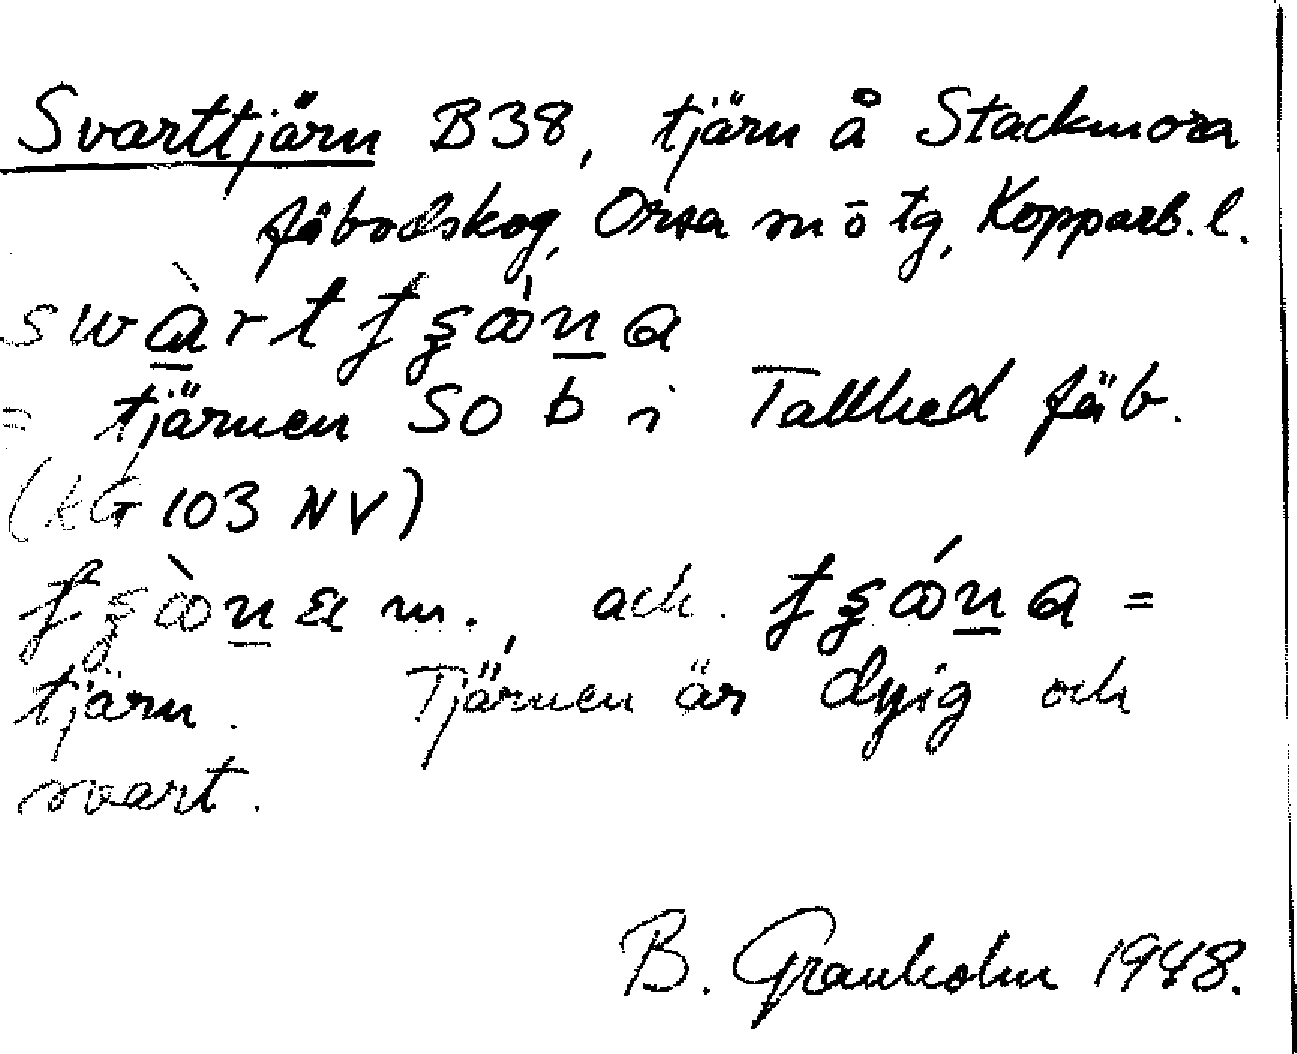 Svarttjärn B38, tjärn å Stackmora
fäbodskog, Orsa sn ō tg, Kopparb. l.
= tjärnen SO b i Tallhed fäb.
(kG 103 NV)
m., ack.
tjärn. Tjärnen är dyig och
svart.
B. Granholm 1948.